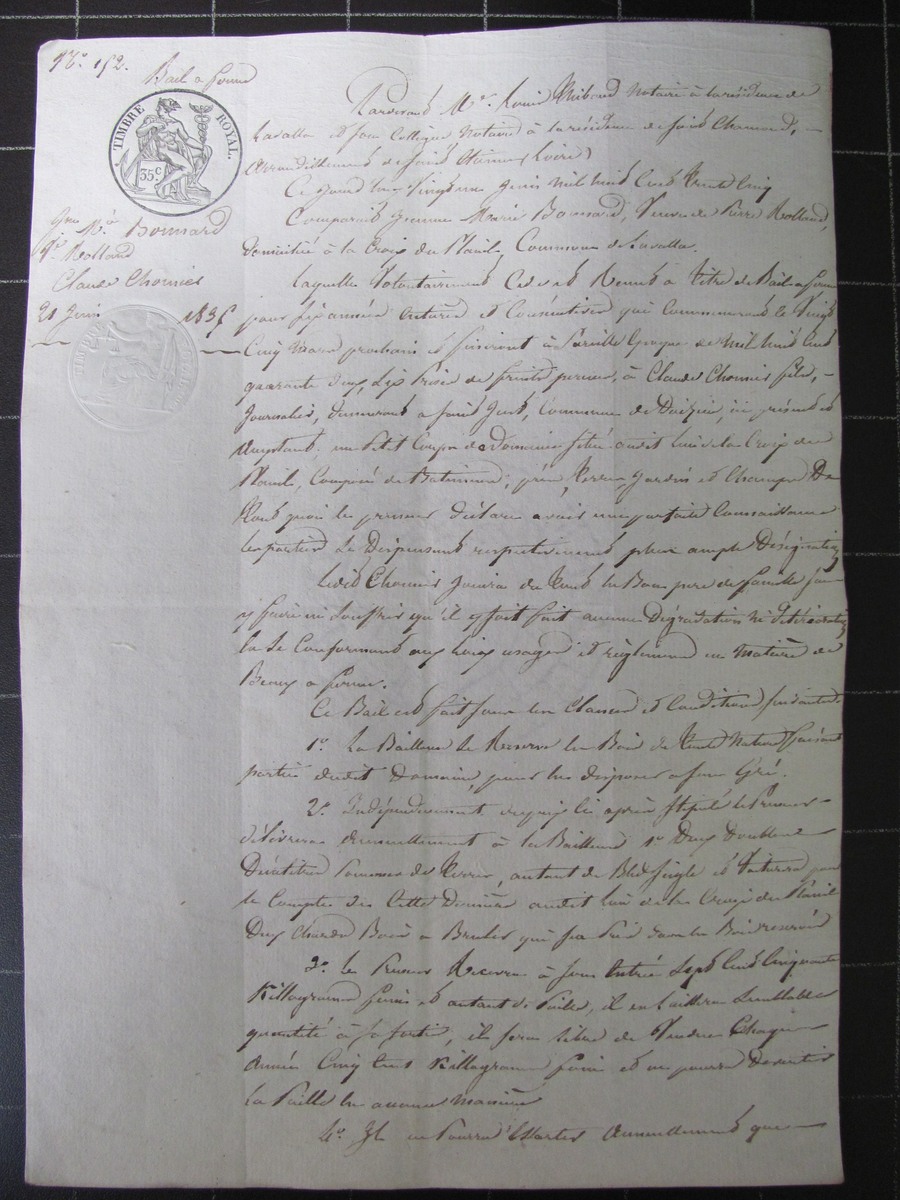 N.° 152.
Bail a ferme
TIMBRE ROYAL.
35 c.
Jne Mie Bonnard
Ve Rolland
Claude Chomier
21 Juin 1835
Pardevant Me Louis Notaire à la résidence de
Lavalla et son Collègue Notaire à la résidence de Saint Chamond,
arrondissement de Saint Etienne (Loire)
Ce Jourd'hui Vingt un Juin mil huit cent trente Cinq
Comparait Jeanne Marie Bonnard, Veuve de Pierre Rolland,
domiciliée à la Croix du Planil, Commune de Lavalla.
Laquelle Volontairement Cède et Remet à titre de Bail a ferme
pour six années entières et Consécutives qui Commenceront le Vingt
Cinq Mars prochain et finiront à Pareille Epoque de Mil huit Cent
quarante deux, dix Prise de fruits perçus, à Claude Chomier fils,
Journalier, demeurant a Saint Just, Commune de Doizieu, ici présent et
acceptant, un Petit Corps de Domaine situé audit lieu de la Croix du
Planil, Composé de Batiments, prés, Terres, Jardin et Champs De
tout quoi le preneur déclare avoir une parfaite Connaissance
les parties Se Dispensant respectivement plus ample Désignation
Ledit Chomier Jouira du tout en Bon pere de famille sans
y faire ni Souffrir qu'il y soit fait aucune Dégradation ni détériora
la Se Conformant aux loix, usages et règlements en Matière de
Baux a ferme.
Ce Bail est fait sous les Clauses et Conditions suivantes.
1.° La Bailleuse Se Réserve les Bois de toute Nature faisant
partie dudit Domaine, pour en disposer a son Gré.
2.° Indépendamment du prix ci après Stipulé le Preneur
délivrera annuellement à la Bailleuse 1.° Deux Doubles
Décalitres Pommes de Terre, autant de Bled Seigle et Voiturera pour
le Compte de Cette Dernière audit lieu de la Croix du Planil
Deux Chars de Bois a Bruler qui sera Pris dans les Bois réservés
3.° le Preneur Recevra à son Entrée Sept Cent Cinquante
Killogrammes foin et autant de Paille, il en laissera Semblable
quantité à sa sortie, il sera libre de Vendre Chaque
Année Cinq Cents Killogrammes foin et ne pourra Divertir
la Paille en aucune Manière
4.° Il ne Pourra Essarter Annuellement que